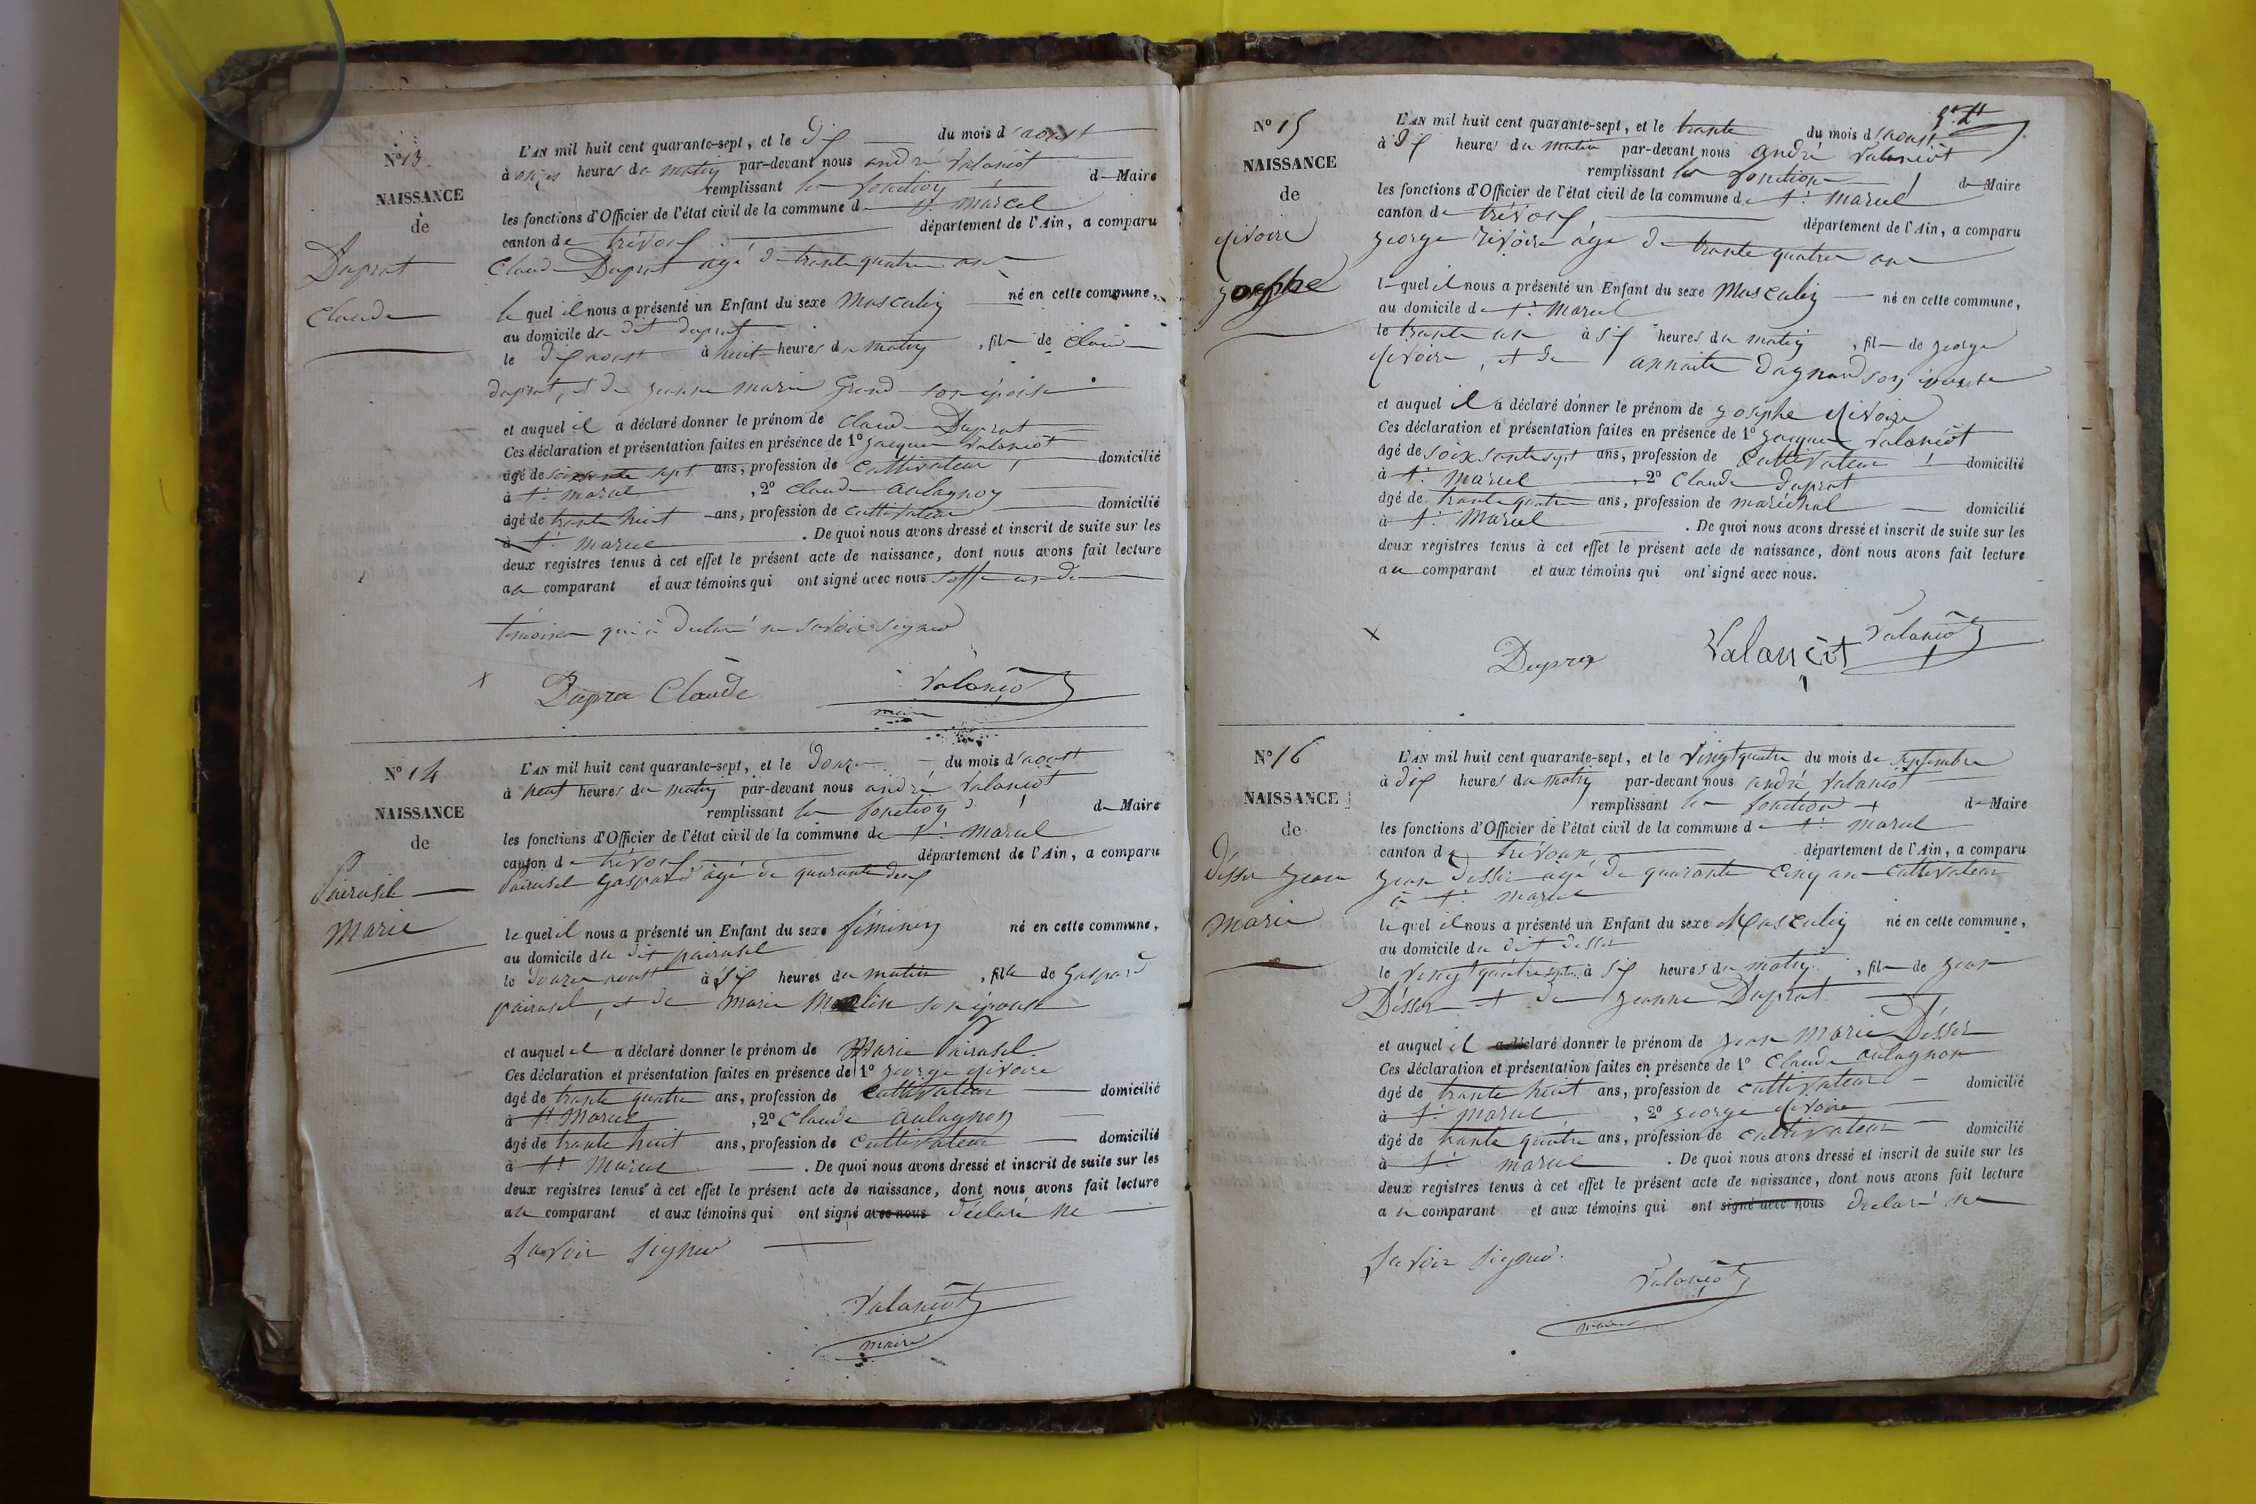 N° 13
NAISSANCE
de
Duprat
Claude
L'AN mil huit cent quarante-sept, et le dix du mois d'aoust
à onzes heures du matin par-devant nous andré Valanciot
remplissant les fonction de Maire
les fonctions d'Officier de l'état civil de la commune de St marcel
canton de trévoux département de l'Ain, a comparu
Claude Duprat agé de trante quatre ans
le quel il nous a présenté un Enfant du sexe Masculin né en cette commune,
au domicile du dit duprat
le dix aoust à huit heures du matin, fils de Claude
duprat, et de jeanne marie Grand son épouse
et auquel il a déclaré donner le prénom de Claude Duprat
Ces déclaration et présentation faites en présence de 1° jacques Valanciot
âgé de soixante sept ans, profession de Cultivateur domicilié
à St marcel, 2° Claude aulagnon
âgé de trante huit ans, profession de Cultivateur domicilié
à St marcel. De quoi nous avons dressé et inscrit de suite sur les
deux registres tenus à cet effet le présent acte de naissance, dont nous avons fait lecture
au comparant et aux témoins qui ont signé avec nous
témoins qui a déclaré ne savoir signer
Dupra Claude Valanciot
maire
N° 14
NAISSANCE
de
Pairusel
Marie
L'AN mil huit cent quarante-sept, et le douze du mois d'aoust
à neuf heures du matin par-devant nous andré Valanciot
remplissant les fonction de Maire
les fonctions d'Officier de l'état civil de la commune de St marcel
canton de trévoux département de l'Ain, a comparu
Pairusel Gaspard agé de quarante deux
le quel il nous a présenté un Enfant du sexe féminin né en cette commune,
au domicile du dit pairusel
le douze aoust à six heures du matin, fille de Gaspard
pairusel, et de marie son épouse
et auquel il a déclaré donner le prénom de Marie Pairusel
Ces déclaration et présentation faites en présence de 1° george rivoire
âgé de trante quatre ans, profession de Cultivateur domicilié
à St Marcel, 2° Claude aulagnon
âgé de trante huit ans, profession de Cultivateur domicilié
à St Marcel. De quoi nous avons dressé et inscrit de suite sur les
deux registres tenus à cet effet le présent acte de naissance, dont nous avons fait lecture
au comparant et aux témoins qui ont signé avec nous déclaré ne
Savoir Signer
Valanciot
maire
N° 15
NAISSANCE
de
rivoire
josphe
L'AN mil huit cent quarante-sept, et le trante du mois d'aoust
à dix heures du matin par-devant nous andré Valanciot
remplissant les fonction de Maire
les fonctions d'Officier de l'état civil de la commune de St marcel
canton de trévoux, département de l'Ain, a comparu
george rivoire agé de trante quatre ans
le quel il nous a présenté un Enfant du sexe Masculin né en cette commune,
au domicile de St marcel
le trante un à six heures du matin, fils de george
rivoire, et de annaite dagnaud son épouse
et auquel il a déclaré donner le prénom de josphe rivoire
Ces déclaration et présentation faites en présence de 1° jacques Valanciot
âgé de soixsante sept ans, profession de Cultivateur domicilié
à St marcel, 2° Claude duprat
âgé de trante quatre ans, profession de maréchal domicilié
à St Marcel. De quoi nous avons dressé et inscrit de suite sur les
deux registres tenus à cet effet le présent acte de naissance, dont nous avons fait lecture
au comparant et aux témoins qui ont signé avec nous.
Dupra Valançiot Valanciot
N° 16
NAISSANCE
de
désser jean
marie
L'AN mil huit cent quarante-sept, et le vingt quatre du mois de septembre
à dix heures du matin par-devant nous andré Valanciot
remplissant les fonction de Maire
les fonctions d'Officier de l'état civil de la commune de St marcel
canton de trévoux département de l'Ain, a comparu
jean désser agé de quarante cinq ans Cultivateur
à St marcel
le quel il nous a présenté un Enfant du sexe Masculin né en cette commune,
au domicile du dit désser
le vingt quatre sept. à six heures du matin, fils de jean
Désser et de jeanne Duprat
et auquel il a déclaré donner le prénom de jean marie Désser
Ces déclaration et présentation faites en présence de 1° Claude aulagnon
âgé de trante huit ans, profession de cultivateur domicilié
à St marcel, 2° george rivoire
âgé de trante quatre ans, profession de cultivateur domicilié
à St marcel. De quoi nous avons dressé et inscrit de suite sur les
deux registres tenus à cet effet le présent acte de naissance, dont nous avons fait lecture
au comparant et aux témoins qui ont signé avec nous déclaré ne
Savoir Signer.
Valanciot
maire